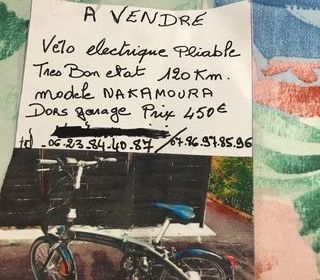 A VENDRE
Vélo electrique Pliable
Tres Bon etat 120 Km.
modèle NAKAMOURA
Dors garage Prix 450€
tel - 06.23.84.40.87 / 07.86.97.85.96